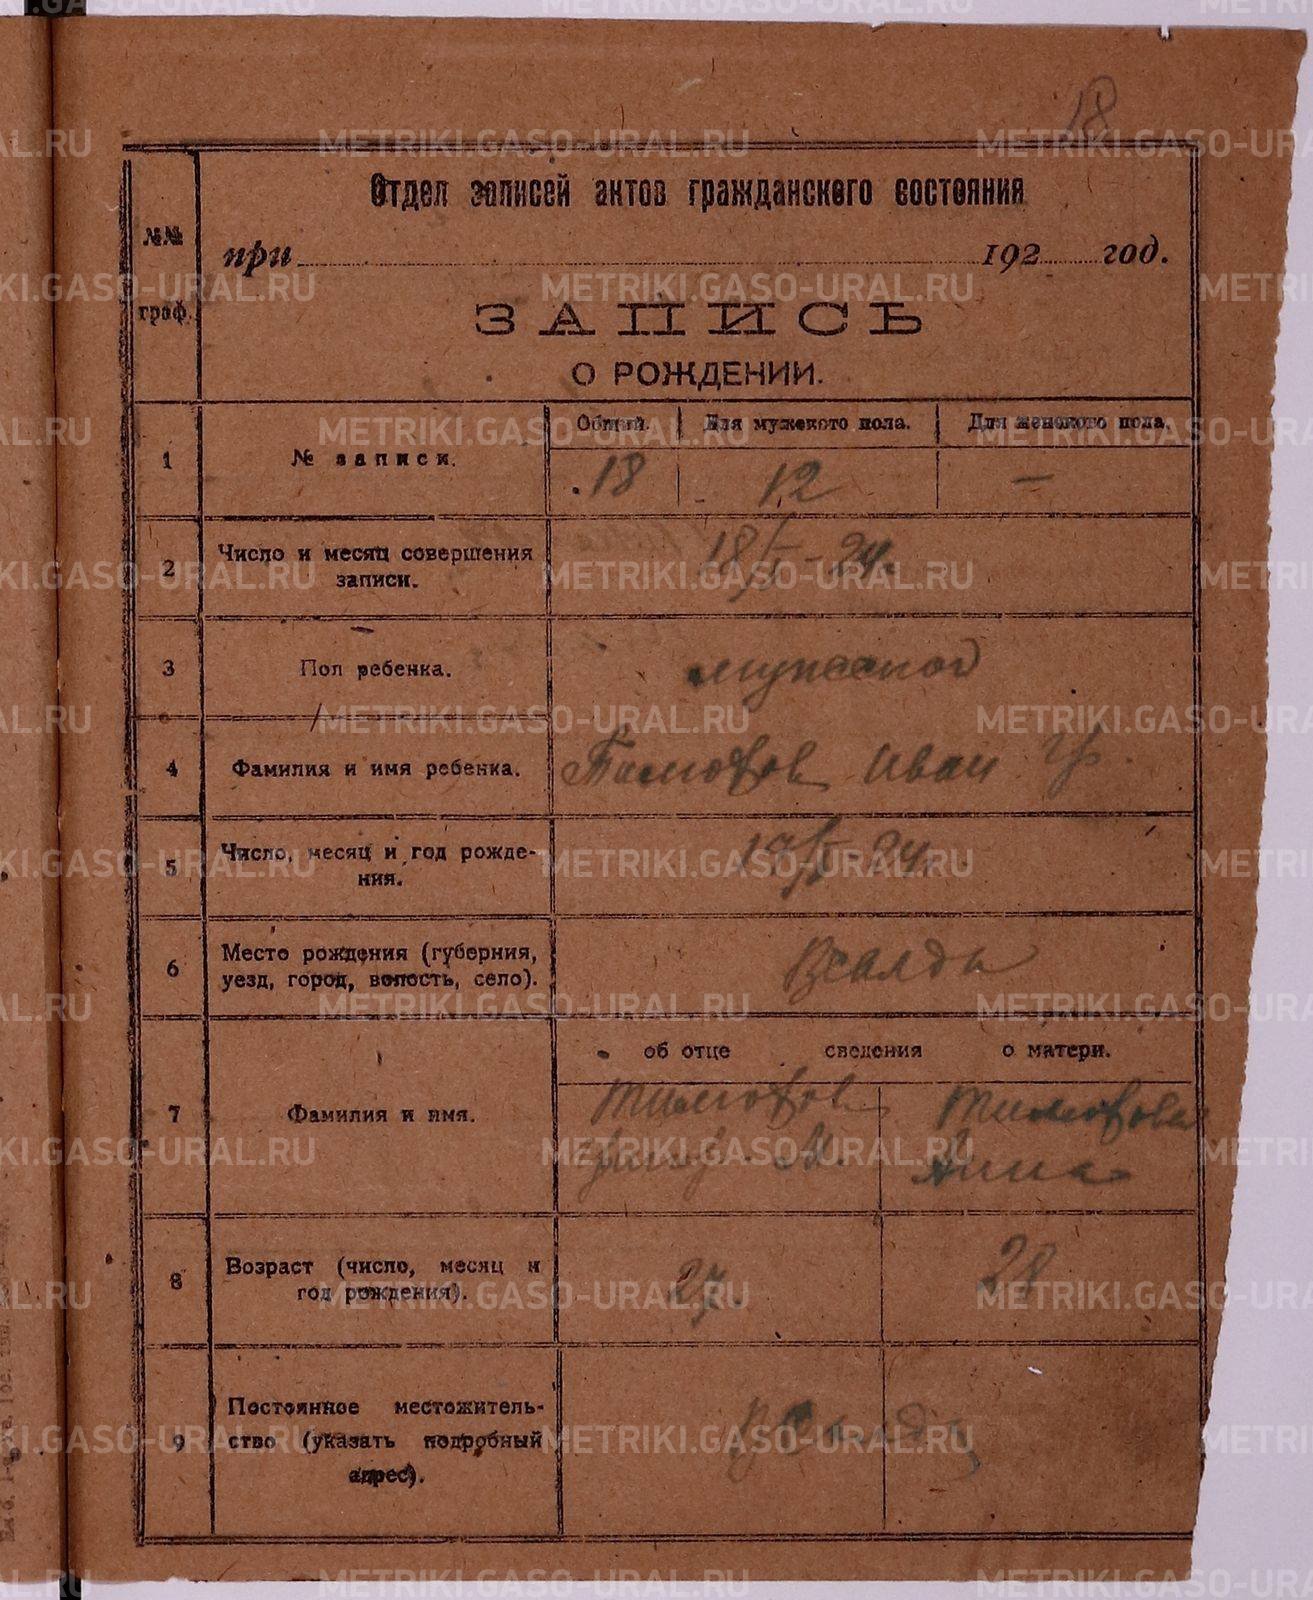 18
Отдел записей актов гражданского состояния
№№ граф.
при 192 год.
ЗАПИСЬ
О РОЖДЕНИИ.
Общий. Для мужского пола. Для женского пола.
1 № записи. 18 12 —
2 Число и месяц совершения
записи. 18/I - 24.
3 Пол ребенка. мужской
4 Фамилия и имя ребенка. Иван Гр.
5 Число, месяц и год рожде-
ния.
6 Место рождения (губерния,
уезд, город, волость, село).
об отце сведения о матери.
7 Фамилия и имя.
Анна
8 Возраст (число, месяц и
год рождения). 27. 28
9 Постоянное местожитель-
ство (указать подробный
адрес).
METRIKI.GASO-URAL.RU